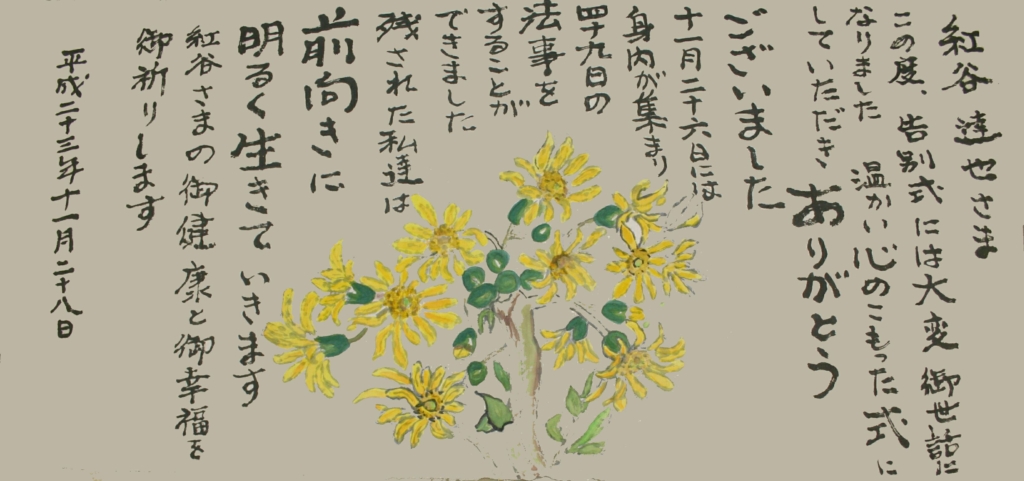 紅谷達也さま
この度、告別式には大変御世話に
なりました 温かい心のこもった式に
していただき ありがとう
ございました
十一月二十六日には
身内が集まり
四十九日の
法事を
することが
できました
残された私達は
前向きに
明るく生きていきます
紅谷さまの御健康と御幸福を
御祈りします
平成二十三年十一月二十八日